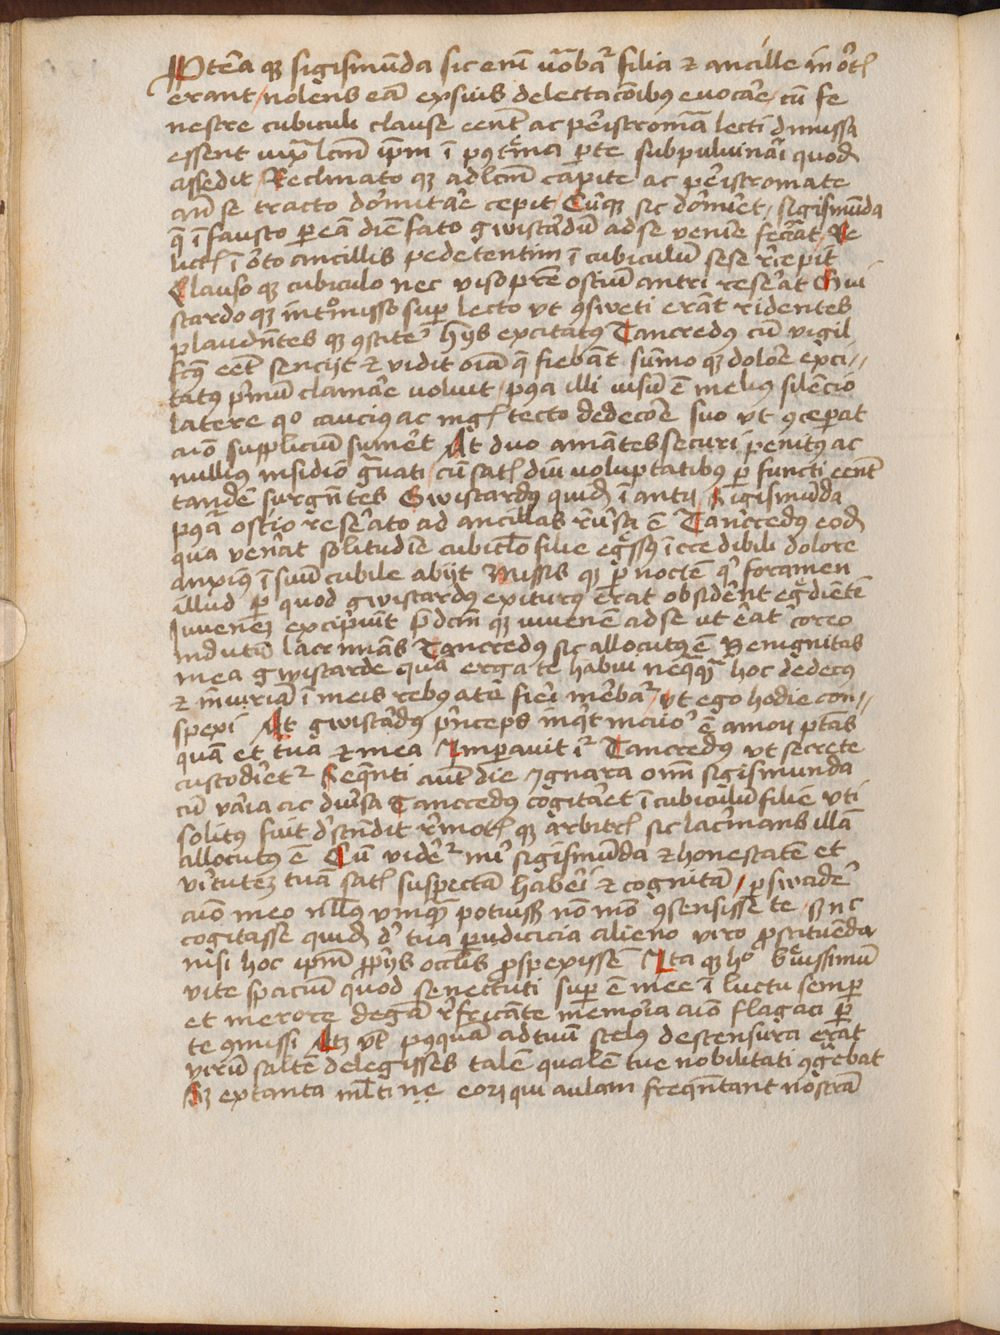 Ptea qȝ sigismūda sic enī voc̄abat filia et ancille in ort
erant / nolēs eā ex suis delectacōibus euocare / cū fe
nestre cubiculi clause eent ac peristromā lecti dmissa
essent iuxta lcm ipm ī pte subpuluinari quod
assedit / Reclinato qȝ ad lcm capite ac peristromate
ad se tracto dormitare cepit / Cūqȝ sic dormiret / sigismūda
q̄ ī fausto p eā diē fato gwistardū ad se venire fecerat / Re
lictis ī orto ancillis pedetentim ī cubiculum sese recepit
Clauso qȝ cubiculo nec viso pre ostiū antri reserat Gui
stardo qȝ intromisso sup lecto vt ꝯsweti erāt ridentes
plaudentes qȝ hijs excitatus Tancredus cū vigil
eet sencijt et vidit oīa q̄ fiebāt sūmo qȝ dolore exci-
tatus pmum clamare voluit / pꝯqa illi uisū ē melius silēcio
latere qo caucius ac mgis tecto dedecore suo vt ꝯceperat
aīo suppliciū sumeret At duo amātes securi penitus ac
nullius insidio gnati / cū satis diu voluptatibus pfuncti eent
tandē surgentes Gwistardus quidē ī antrū / Sigismūda
pꝯqā ostio reserato ad ancillas reuersa ē Tancredus eodē
qua venerat solitudine cubiculo filie egressus īcredibili dolore
anxius ī suū cubile abijt Missis qȝ p noctē qr foramen
illud p quod gwistardus exiturus erat obsiderent egrediētē
Juuenem exciperent pdcm qȝ iuuenē ad se ut erat coreo
indutum lacrimans Tancredus sic allocutus ē Benignitas
mea gwistarde qua erga te habui neqqm hoc dedecus
et iniuriā ī meis rebus a te fieri merebat / vt ego hodie con-
spexi At gwistardus prīceps inqt maior ē amori ptas
quam et tua et mea Imperauit ir Tancredus vt secrete
custodiret Sequēti aut die Ignara oīm sigismunda
cū varia ac diuersa Tancredus cogitaret ī cubiculū filie vti
solitus fuit dscendit rmotis qȝ arbitris sic lacrimans illā
allocutus ē Cū videret mī sigismūda et honestatē et
virtutem tuā satis suspectā haberi et cognitā / pswadere
aīo meo nllus vmqȝ potuisset nō mō ꝯsensisse te / sȝ nec
cogitasse quidē de tua pudicicia alieno viro prostituēda
nisi hoc ipm pprijs occlis prospexissē Ita qȝ hoc breuissimū
vite spaciū quod senectuti sup ē mee ī luctu semp
et merore degā refricāte memoria aīo flagaci p
te ꝯmissi Atqȝ vt pꝯquā ad tuū scelus descensura erat
virū saltē delegisses talē qualē tue nobilitati ꝯgruebat
Sȝ ex tanta mltine eorȝ qui aulam frequentant nostrā